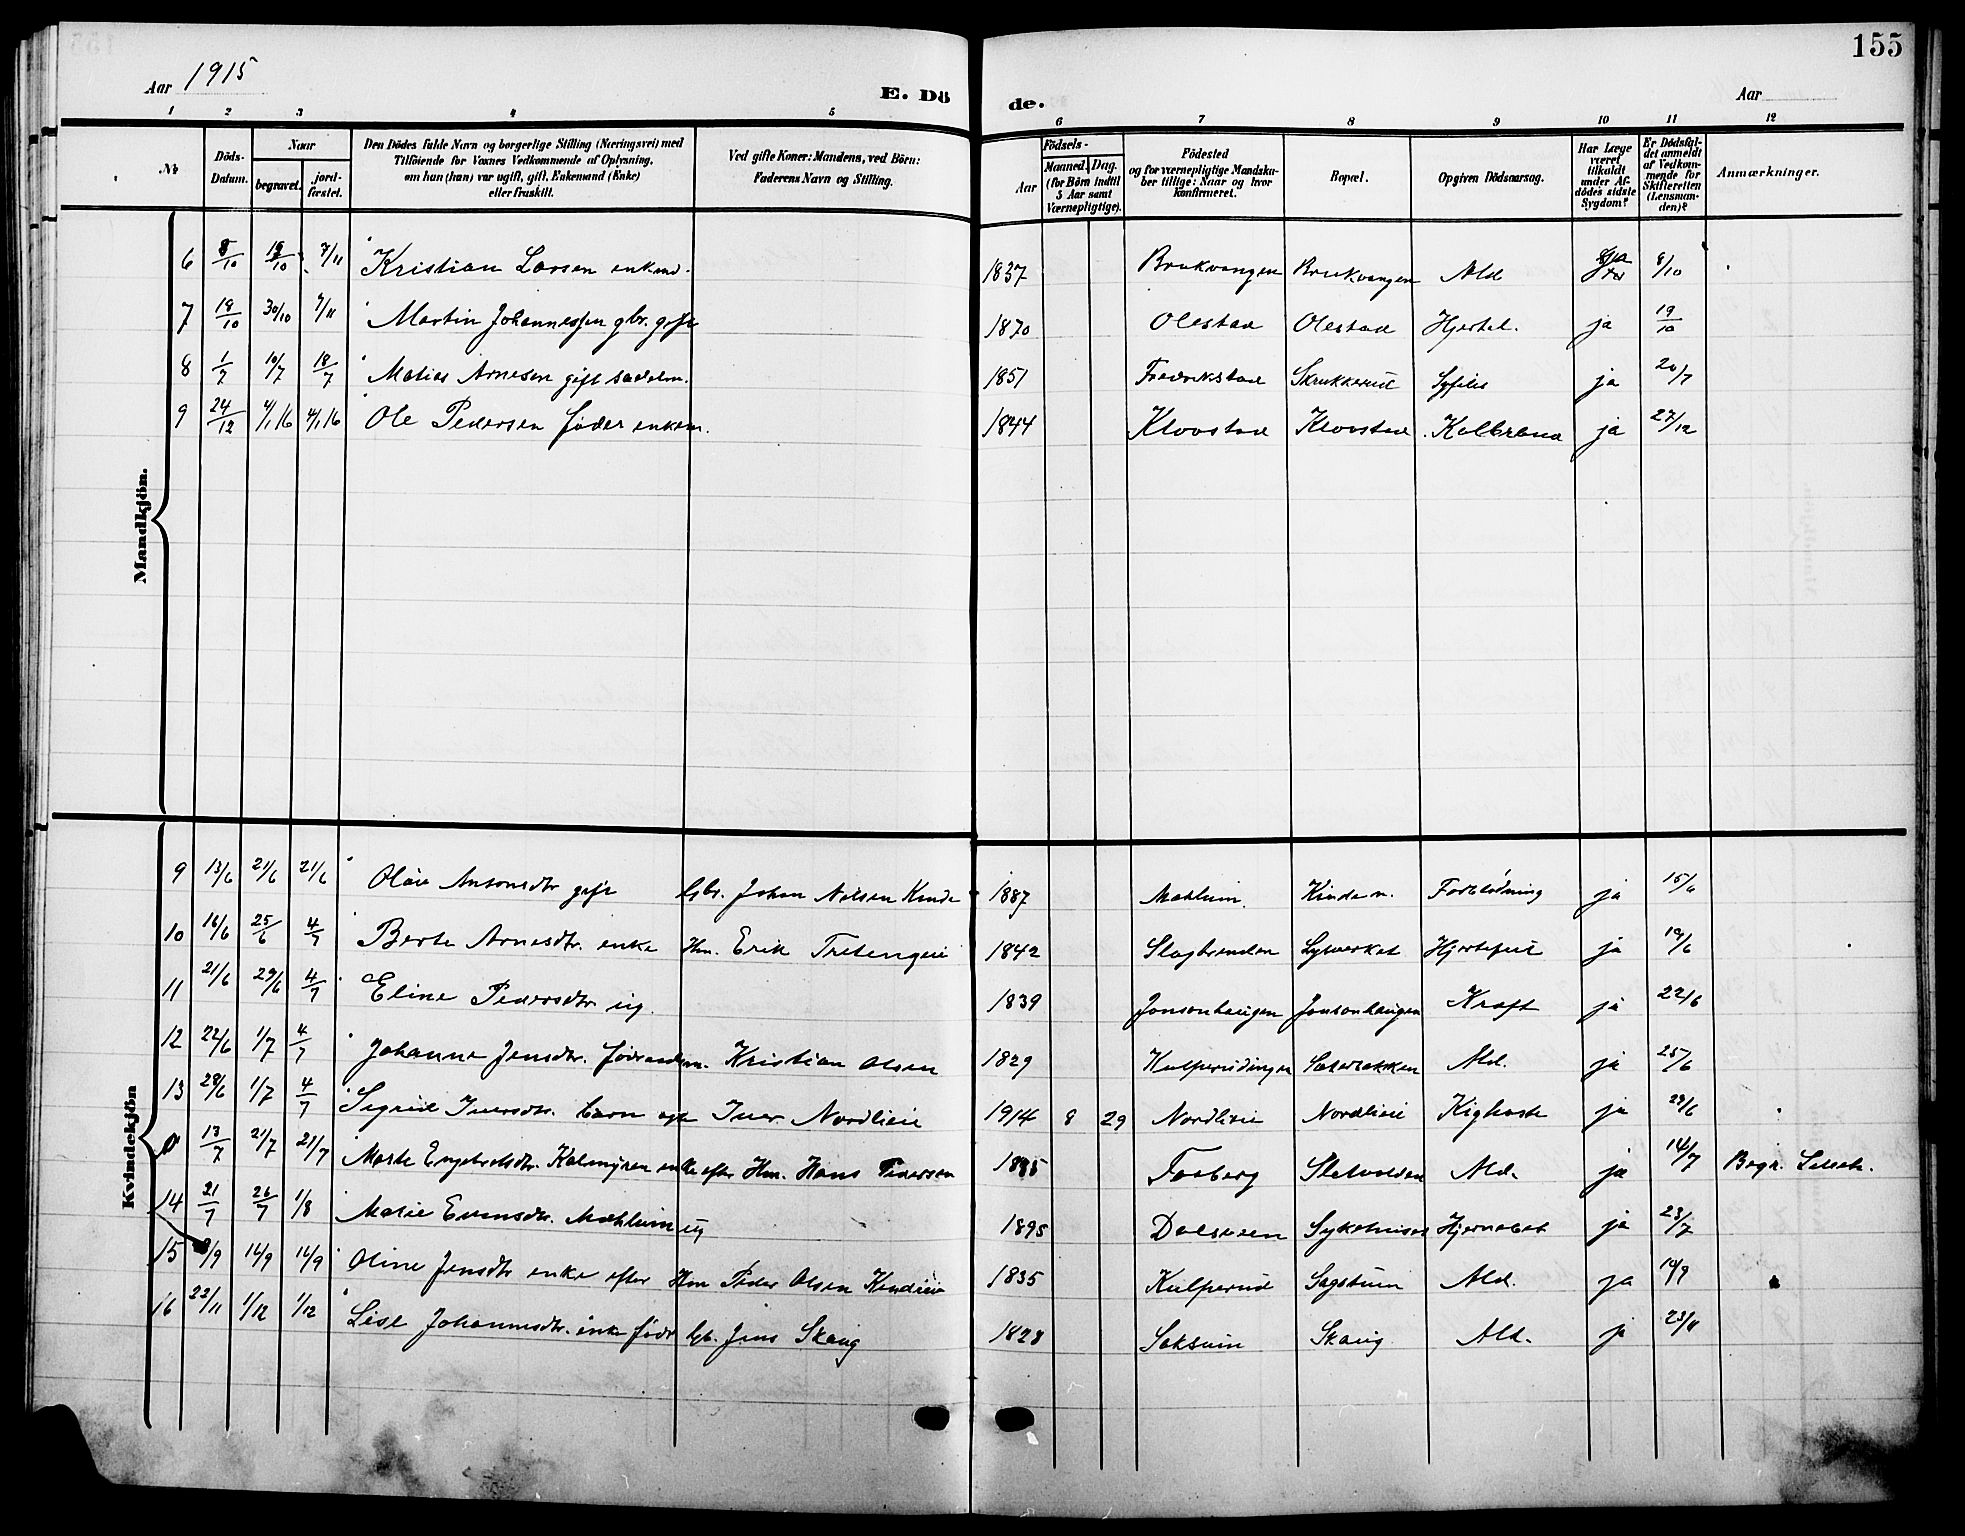 155
Aar 1915
E. Dö
de.
Aar
1 2 3 4 5
6 7 8 9 10 11 12
Nr.
Döds-Datum.
Naar
begravet.
jord-fæstet.
Den Dödes fulde Navn og borgerlige Stilling (Næringsvei) med
Tilföiende for Voxnes Vedkommende af Oplysning,
om hun (han) var ugift, gift, Enkemand (Enke)
eller fraskilt.
Ved gifte Koner: Mandens, ved Börn:
Faderens Navn og Stilling.
Aar
Födsels-
Maaned. Dag.
(for Börn indtil
5 Aar samt
Værnepligtige).
Födested
og for værnepligtige Mandska-
ber tillige: Naar og hvor
konfirmeret.
Bopæl.
Opgiven Dödsaarsag.
Har Læge
været
tilkaldt
under Af-
dödes sidste
Sygdom?
Er Dödsfal-
det anmeldt
af Vedkom-
mende for
Skifteretten
(Lensman-
den)?
Anmærkninger.
Mandkjön.
6 8/10 /10 7/11 Kristian Larsen enkem. 1837 Brukvangen Brukvangen Ald 8/10
7 19/10 30/10 7/11 Martin Johannessen gbr. gift 1870 Olestad Olestad Hjertel. ja 19/10
8 1/7 10/7 18/7 Matias Arnesen gift sadelm. 1851 Fredrikstad Skrukkerud Syfilis ja 20/7
9 24/12 4/1 16 4/1 16 Ole Pedersen föder enkem. 1844 Klovstad Klovstad Kolbrand ja 27/12
Kvindekjön
9 13/6 21/6 21/6 Antonsdtr gift Gbr. Johan Nilsen Kinde 1887 Mæhlum Kinde n. Forblödning ja 15/6
10 16/6 25/6 4/7 Berte Arnesdtr. enke Hm. Erik Tretengeie 1842 Slagbrenden Lysverket Hjertefeil ja 19/6
11 21/6 29/6 4/7 Eline Pedersdtr ug. 1839 Jonsonhaugen Jonsonhaugen Kræft ja 22/6
12 22/6 1/7 4/7 Johanne Jensdtr. Kristian Olsen 1829 Kulperudingen Ald. ja 25/6
13 28/6 1/7 4/7 Sigrid Iversdtr. barn Iver Nordlieie 1914 8 29 Nordlieie Nordlieie Kighoste ja 29/6
0 13/7 21/7 21/7 Marte Engebretsdtr. Kalmyren enke efter Hm. Hans Pedersen Faaberg Sletvolden Ald. ja 14/7 Begr. Lilleh.
14 21/7 26/7 1/8 Marie Evensdtr. Mæhlum ug 1895 Dalsveen Sykehuset ja 23/7
15 9/9 14/9 14/9 Oline Jensdtr enke efter Hm Peder Olsen 1835 Kulperud Sagstuen Ald. ja 14/9
16 22/11 1/12 1/12 Lise Johannesdtr. enke föder Gb. Jens Skaug 1828 Saksum Skaug Ald. ja 23/11